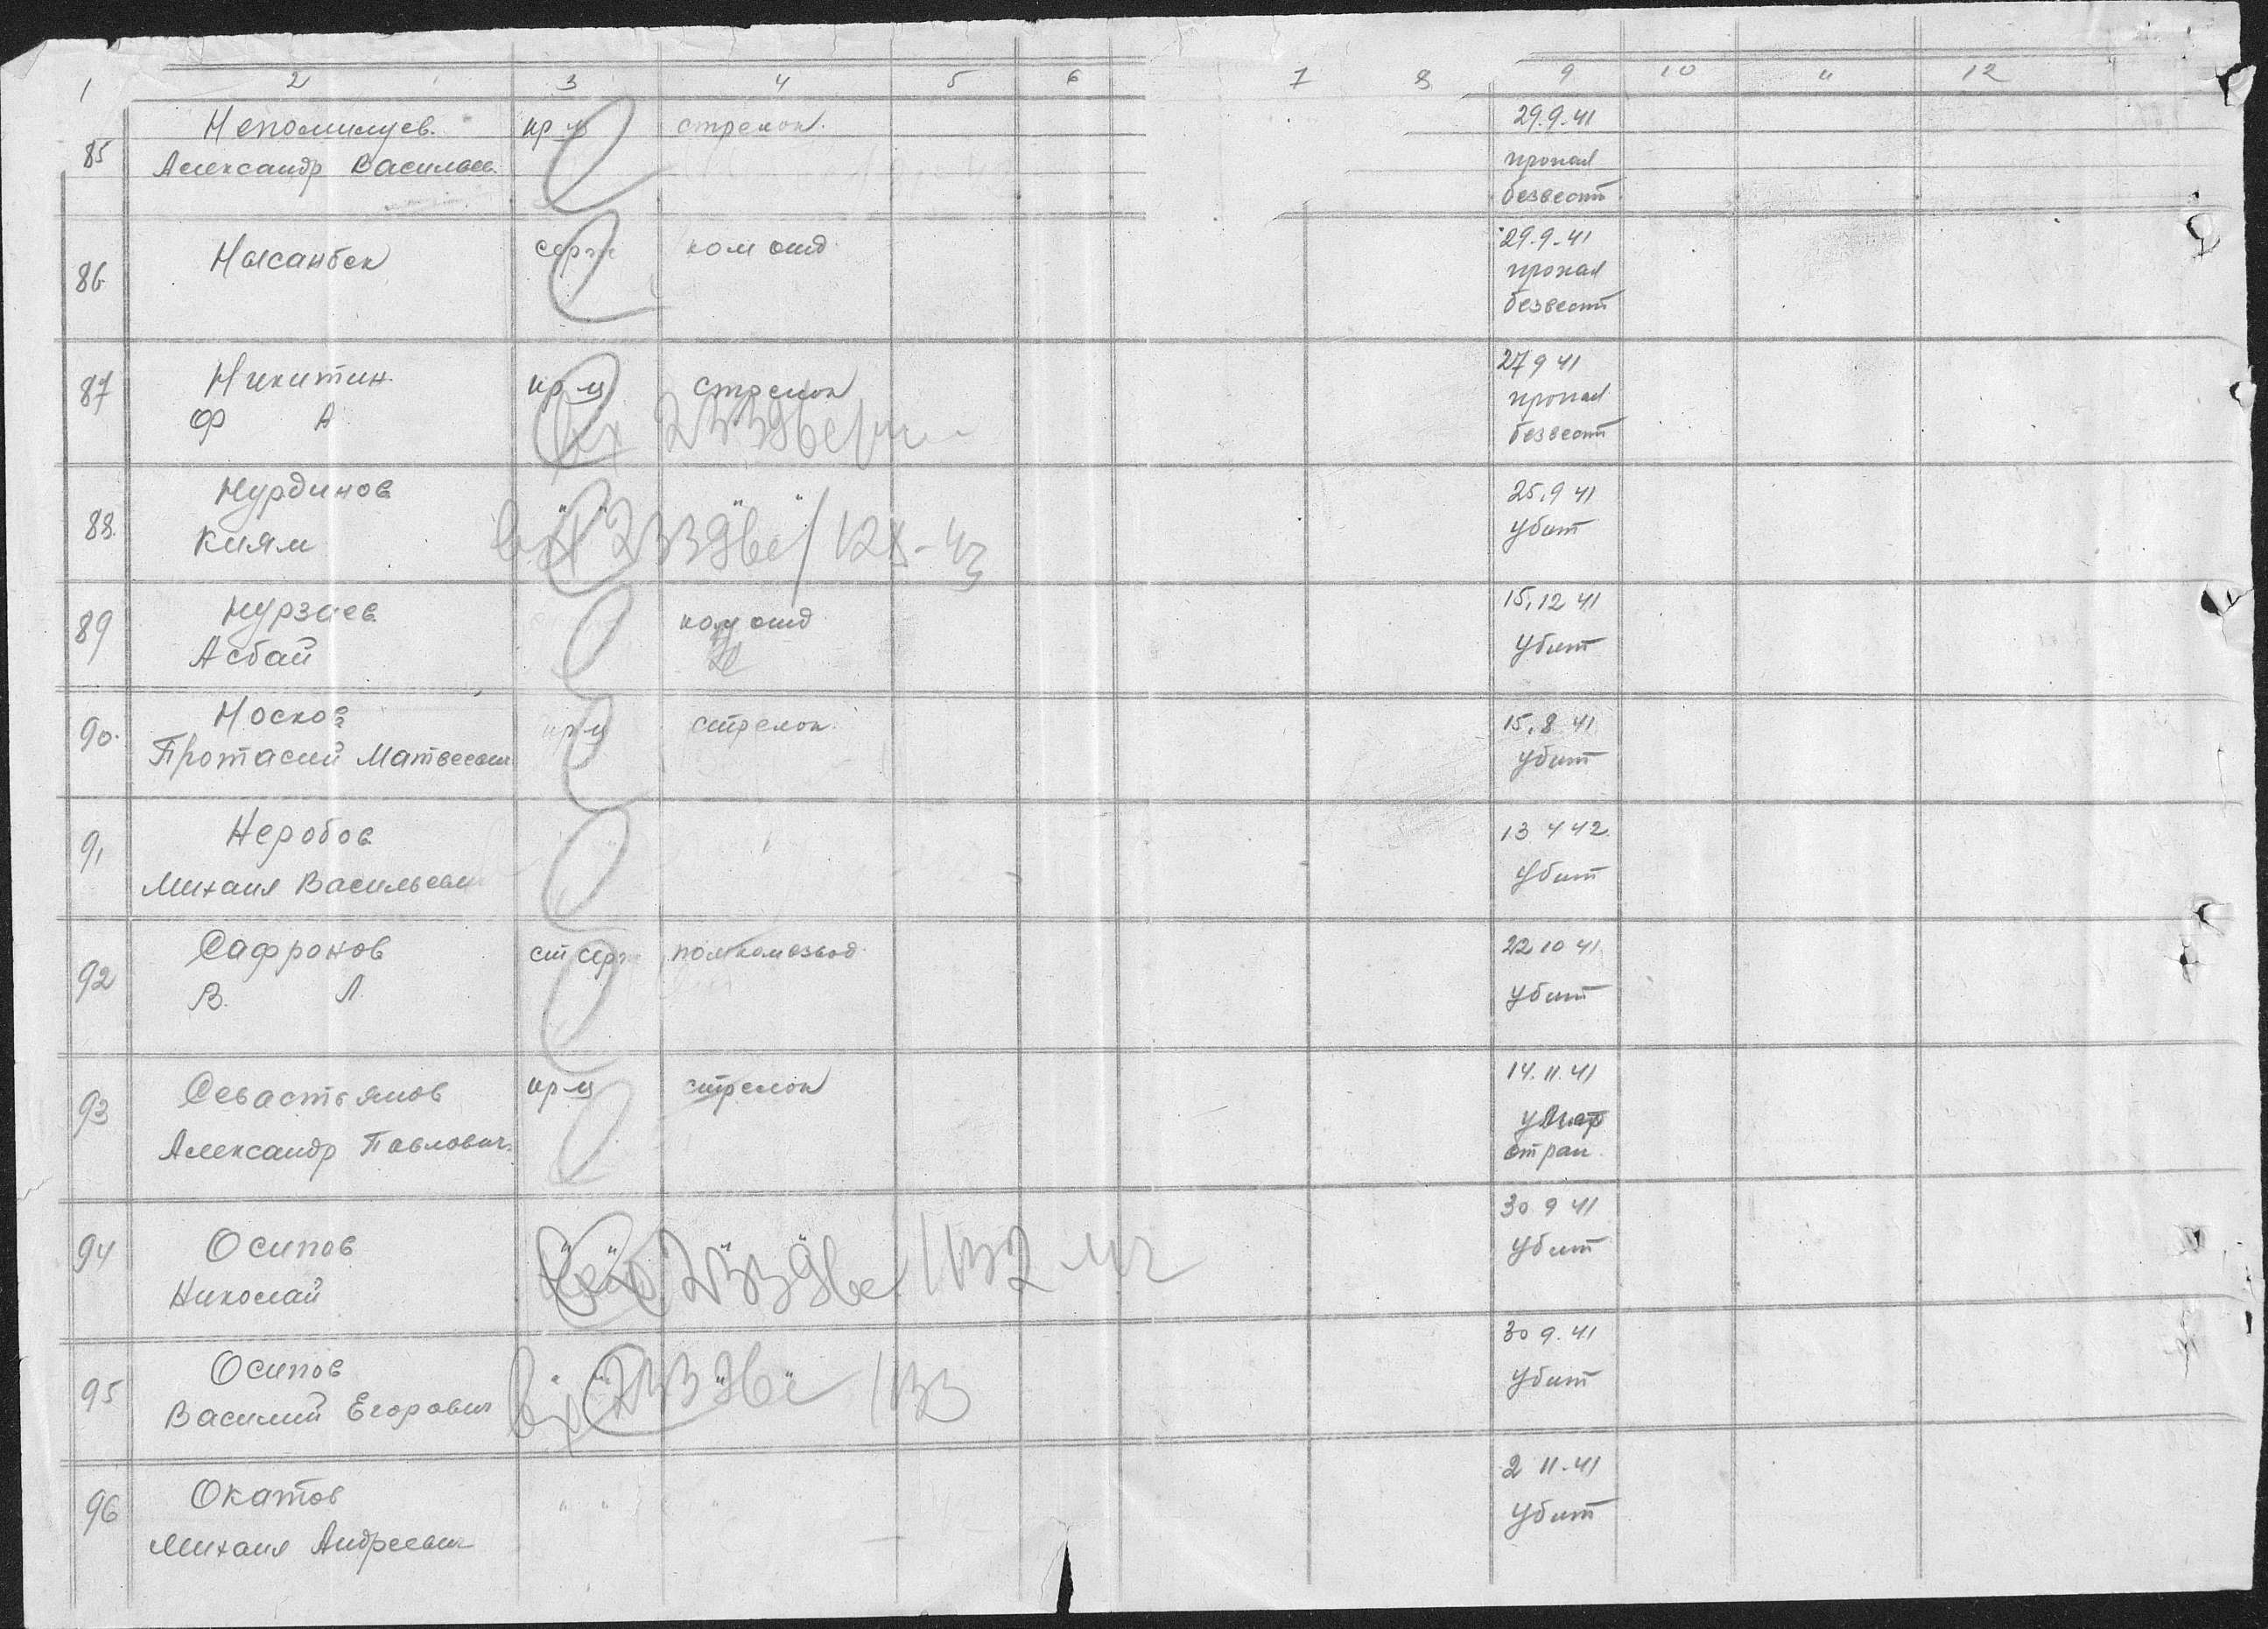 1 2 3 4 5 6 7 8 9 10 11 12
85 Непомилуев кр-ц стрелок 29.9.41
Александр Васильев. пропал
безвест
86 Нысанбек серж ком отд 29.9.41
пропал
безвест
87 Никитин кр-ц стрелок 27 9 41
Ф А пропал
вх 2339вс безвест
88. Нурдинов " " " " 25.9 41
Киям убит
вх 2339вс/128-43
89 Нурзаев ком отд 15.12 41
Асбай убит
90. Носков кр-ц стрелок 15.8 41
Протасий Матвеевич убит
91 Неробов 13 4 42
Михаил Васильевич убит
92 Сафронов ст серж помкомвзвод 22 10 41
В. Л. убит
93 Севастьянов кр-ц стрелок 14.11.41
Александр Павлович
от ран
94 Осипов " " " " 30 9 41
Николай убит
2339вс /132
95 Осипов " " " " 30 9.41
Василий Егорович убит
вх 2339вс /133
96 Окатов " " " 2 11.41
Михаил Андреевич убит